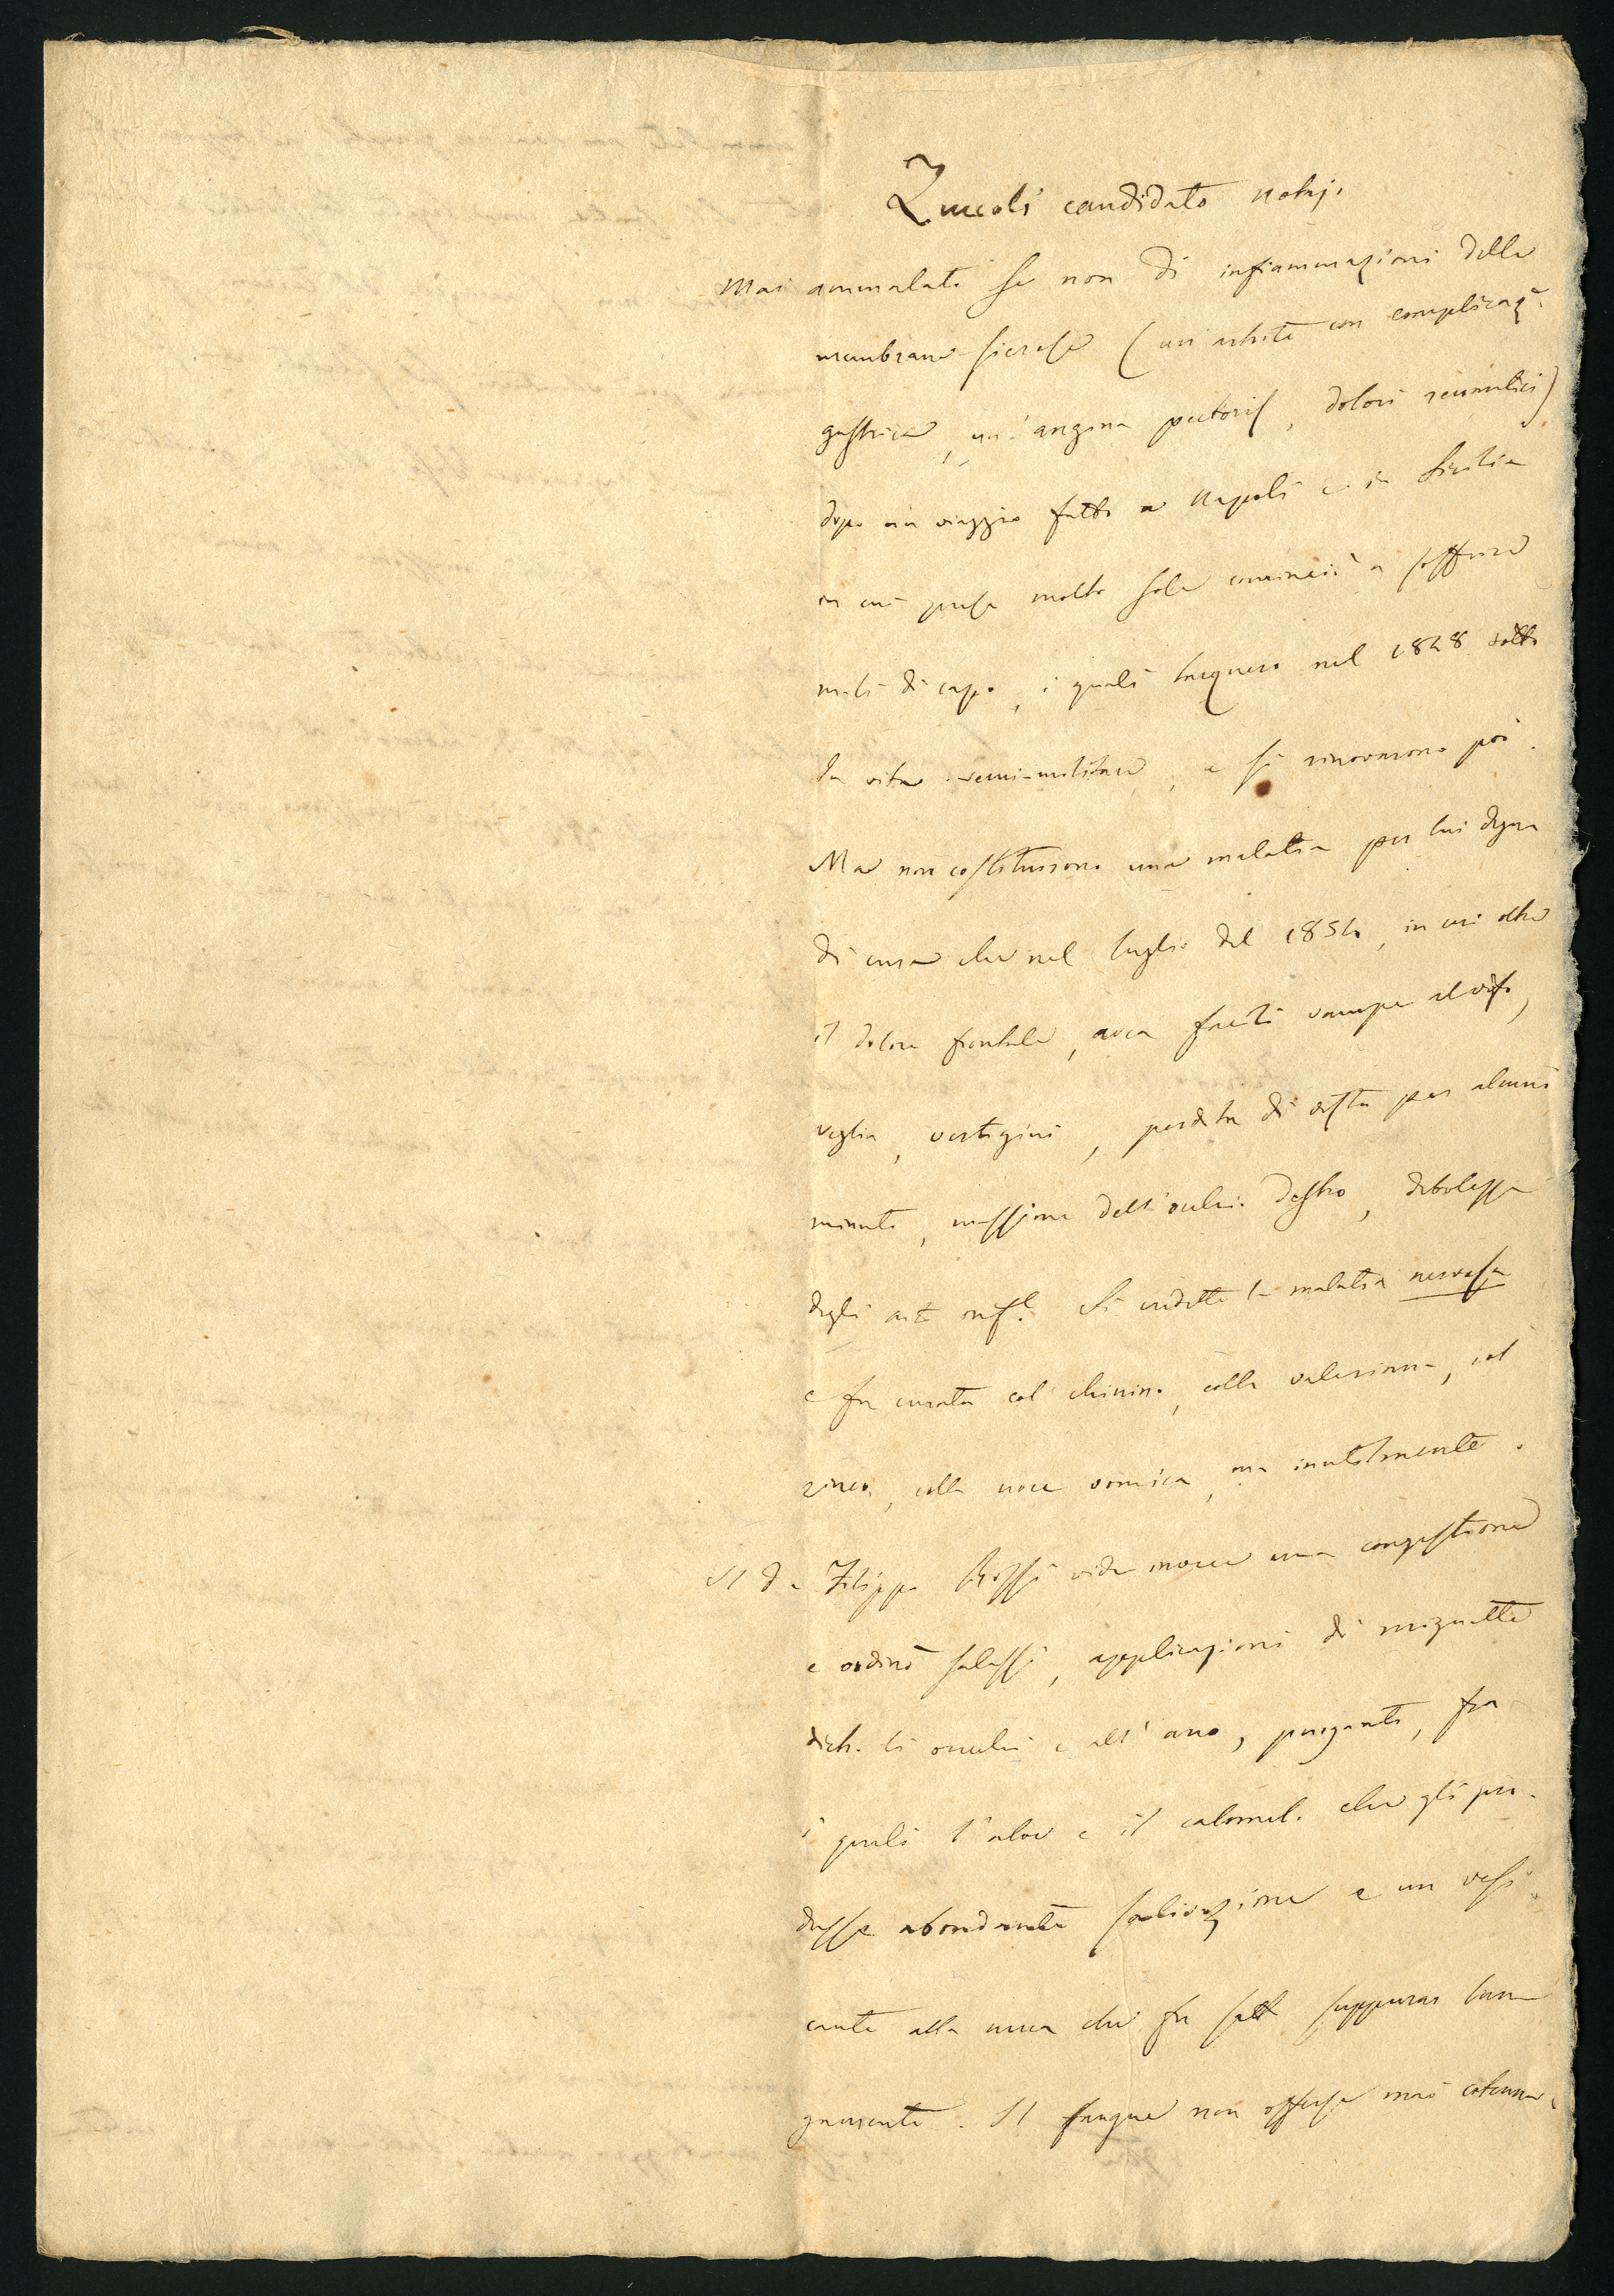 Zuccoli candidato notaj.
Mai ammalato se non di infiammazioni delle
membrane sierose (un artrite con complicaz.e
gastrica, un'angina pectoris, dolori reumatici)
dopo un viaggio fatto a Napoli e in Sicilia
in cui prese molto sole cominciò a soffrire
mali di capo, i quali tacquero nel 1848 sotto
la vita semi-militare, e si rinovarono poi.
Ma non costituirono una malatia per lui degna
di cura che nel luglio del 1854, in cui oltre
il dolore frontale, avea facili vampe al viso,
veglia, vertigini, perdita di vista per alcuni
minuti, massime dell'occhio destro, debolezza
degli art. inf.i Si credette la malatia nervosa
e fu curata col chinino, colla valeriana, col
zinco, colla noce vomica, ma inutilmente.
Il D.r Filippo Rossi vide invece una congestione
e ordinò salassi, applicazioni di mignatte
dietro li orecchi e all'ano, purganti, fra
i quali l'aloe e il calomel. che gli pro-
dusse abondante salivazione e un vessi-
cante alla nuca che fu fatto suppurar lun-
gamente. Il sangue non offerse mai cotenna.